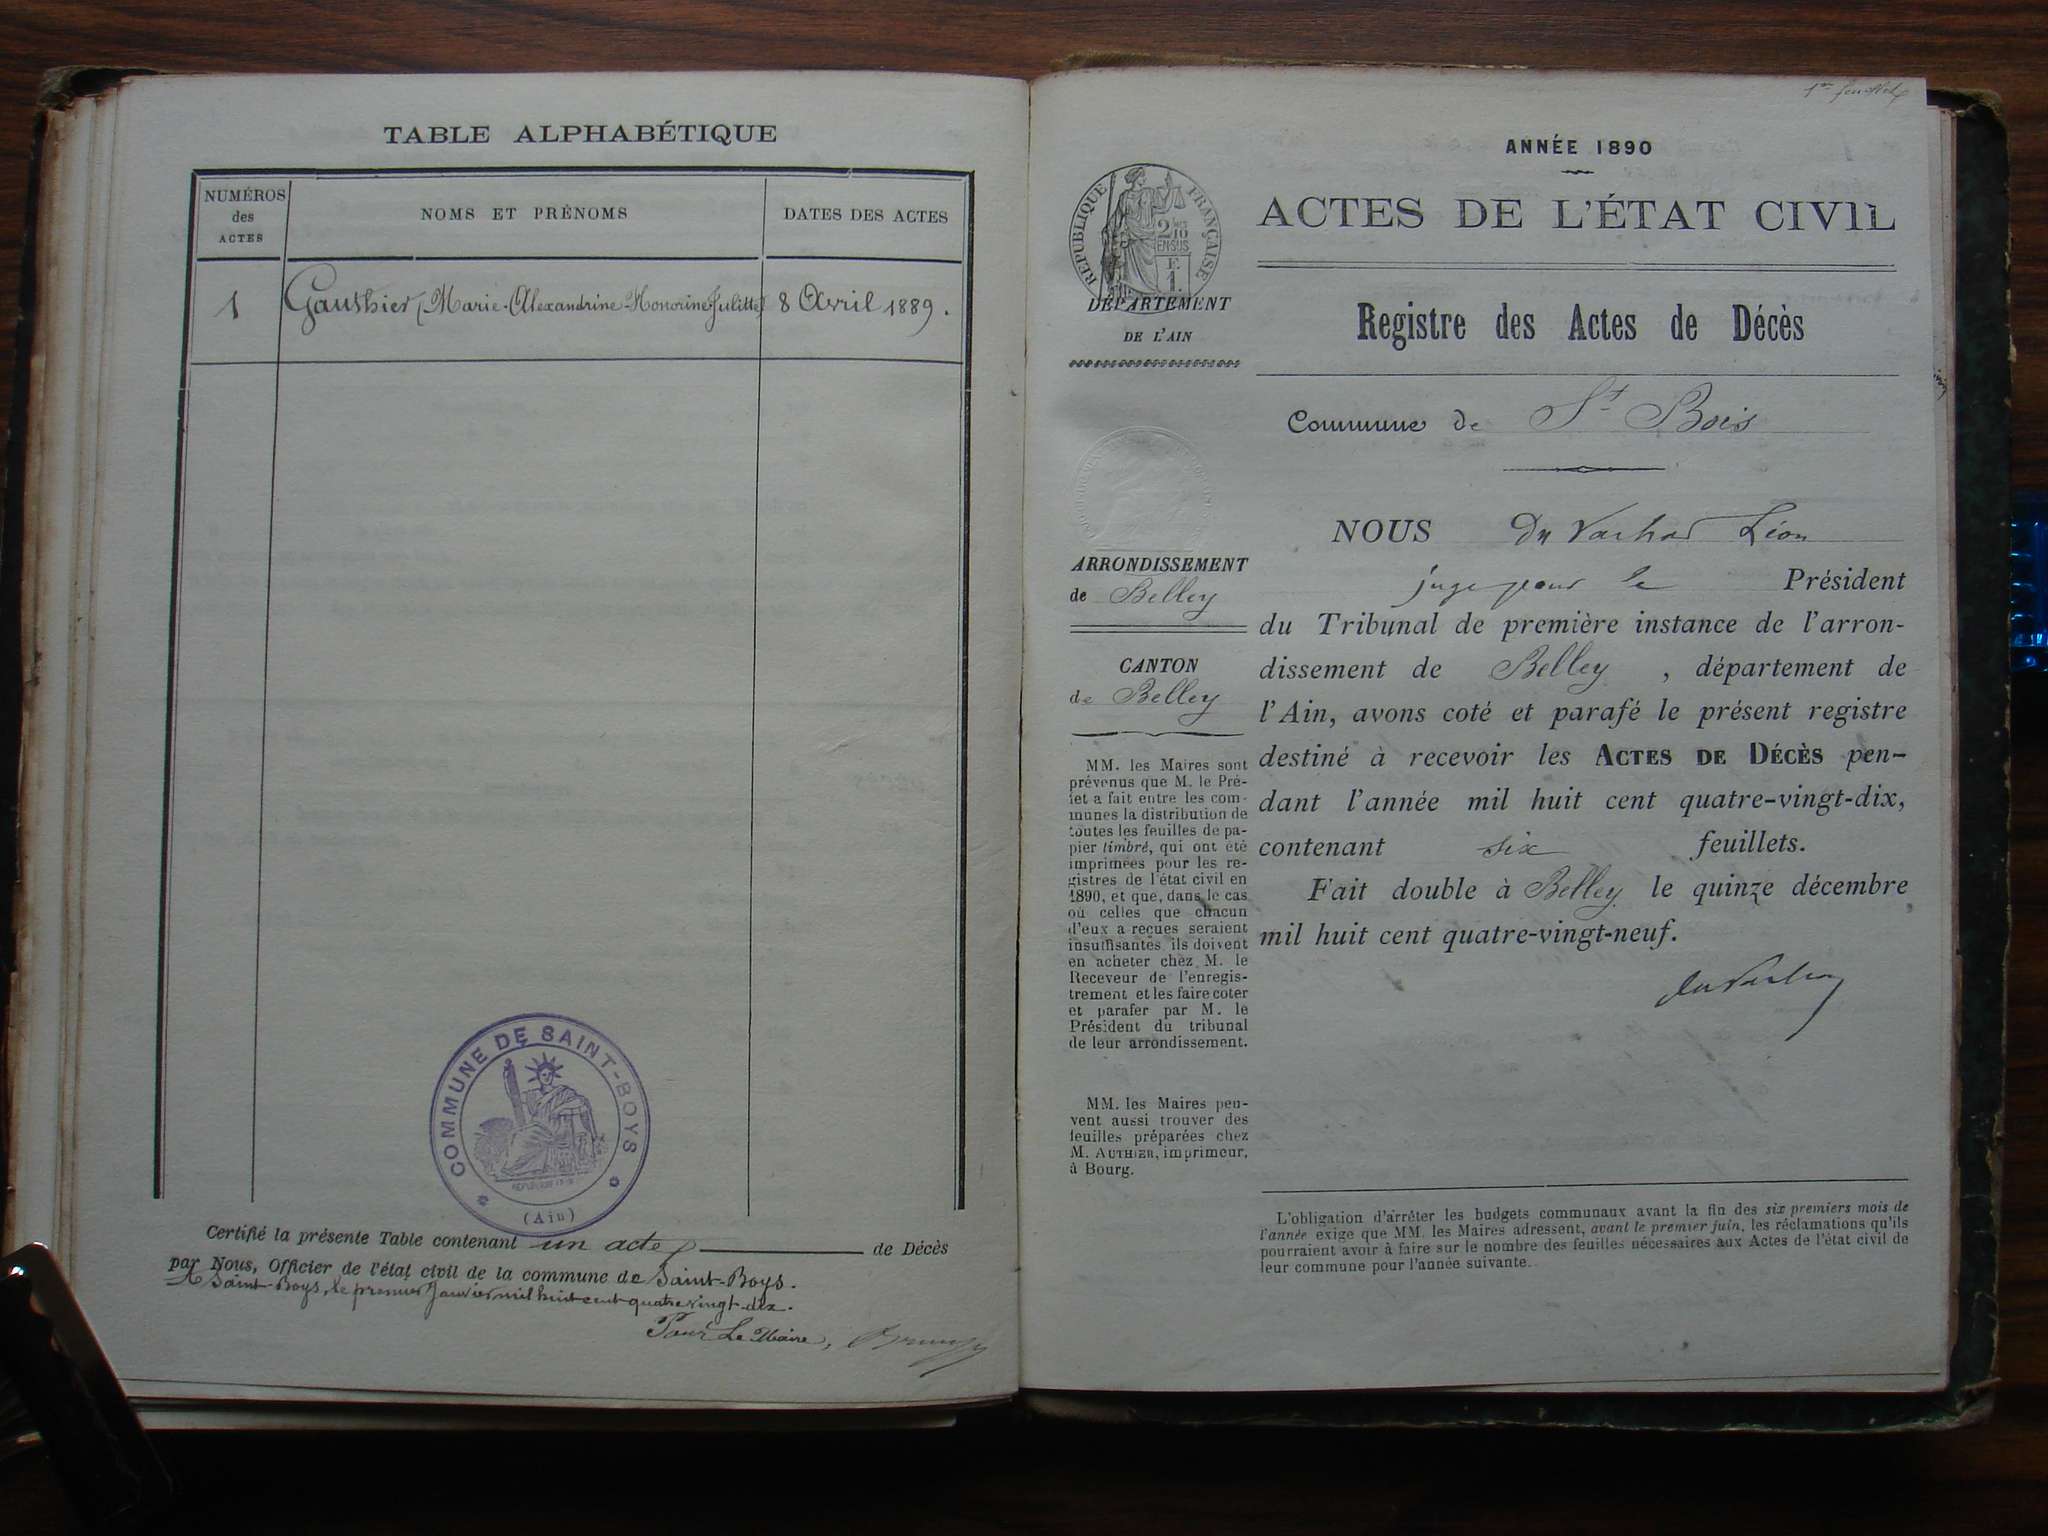 TABLE ALPHABÉTIQUE
NUMÉROS des ACTES
NOMS ET PRÉNOMS
DATES DES ACTES
1 Gauthier (Marie-Alexandrine-Honorine Julitte) 8 Avril 1889.
COMMUNE DE SAINT-BOYS
(Ain)
Certifié la présente Table contenant un acte de Décès
par Nous, Officier de l'état civil de la commune de Saint-Boys.
A Saint-Boys, le premier Janvier mil huit cent quatre vingt-dix.
Pour Le Maire,
1er feuillet
ANNÉE 1890
ACTES DE L'ÉTAT CIVIL
RÉPUBLIQUE FRANÇAISE
2/10 EN SUS
F. 1.
DÉPARTEMENT
DE L'AIN
Registre des Actes de Décès
Commune de St Bois
ARRONDISSEMENT
de Belley
CANTON
de Belley
MM. les Maires sont
prévenus que M. le Pré-
fet a fait entre les com-
munes la distribution de
toutes les feuilles de pa-
pier timbré, qui ont été
imprimées pour les re-
gistres de l'état civil en
1890, et que, dans le cas
où celles que chacun
d'eux a reçues seraient
insuffisantes, ils doivent
en acheter chez M. le
Receveur de l'enregis-
trement et les faire coter
et parafer par M. le
Président du tribunal
de leur arrondissement.
MM. les Maires peu-
vent aussi trouver des
feuilles préparées chez
M. AUTHIER, imprimeur,
à Bourg.
NOUS Du Vachat Léon
juge pour le Président
du Tribunal de première instance de l'arron-
dissement de Belley, département de
l'Ain, avons coté et parafé le présent registre
destiné à recevoir les ACTES DE DÉCÈS pen-
dant l'année mil huit cent quatre-vingt-dix,
contenant six feuillets.
Fait double à Belley le quinze décembre
mil huit cent quatre-vingt-neuf.
L'obligation d'arrêter les budgets communaux avant la fin des six premiers mois de
l'année exige que MM. les Maires adressent, avant le premier juin, les réclamations qu'ils
pourraient avoir à faire sur le nombre des feuilles nécessaires aux Actes de l'état civil de
leur commune pour l'année suivante.